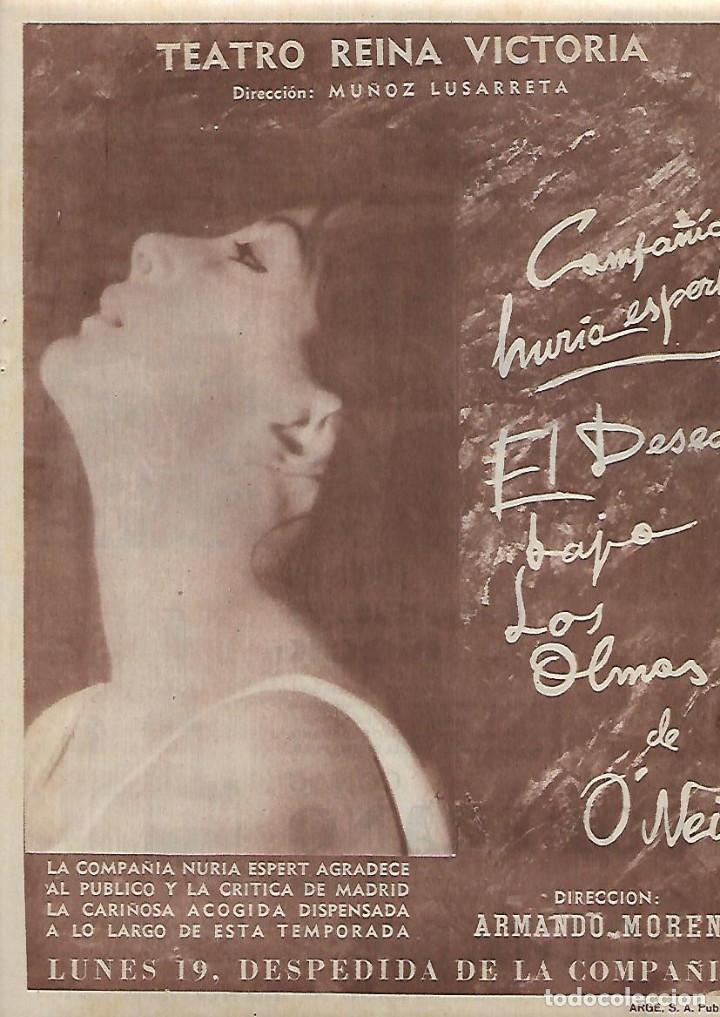 TEATRO REINA VICTORIA
Dirección: MUÑOZ LUSARRETA
Compañía
nuria esper
El Deseo
bajo
Los
Olmos
de
O'Nei
LA COMPAÑIA NURIA ESPERT AGRADECE
AL PUBLICO Y LA CRITICA DE MADRID
LA CARIÑOSA ACOGIDA DISPENSADA
A LO LARGO DE ESTA TEMPORADA
DIRECCION:
ARMANDO MOREN
LUNES 19, DESPEDIDA DE LA COMPAÑI
ARGE, S. A. Pub
todocoleccion